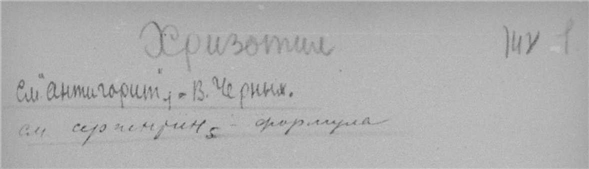 Хризотил
1
см. "антигорит"1 - В. Черных.
см серпентин5 - формула